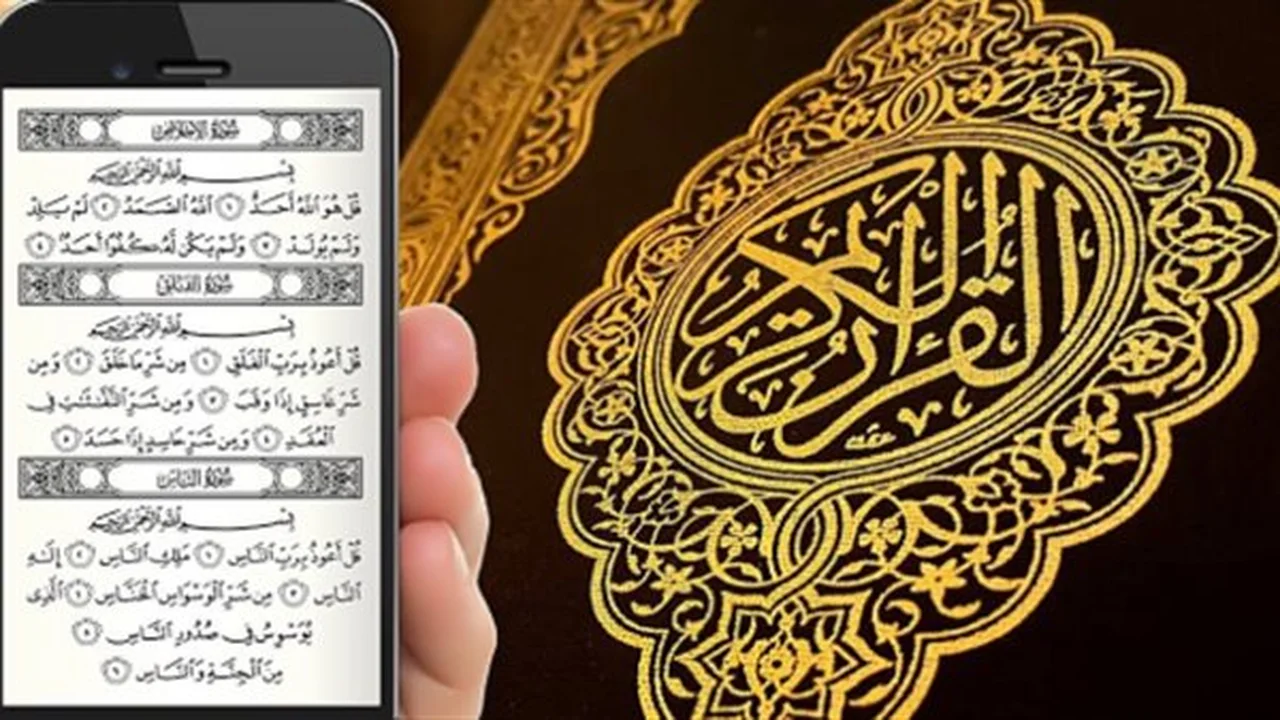 سُورَةُ الإِخْلَاصِ
بِسْمِ اللَّهِ الرَّحْمَٰنِ الرَّحِيمِ
قُلْ هُوَ اللَّهُ أَحَدٌ ١ اللَّهُ الصَّمَدُ ٢ لَمْ يَلِدْ
وَلَمْ يُولَدْ ٣ وَلَمْ يَكُن لَّهُ كُفُوًا أَحَدٌ ٤
سُورَةُ الفَلَقِ
بِسْمِ اللَّهِ الرَّحْمَٰنِ الرَّحِيمِ
قُلْ أَعُوذُ بِرَبِّ الْفَلَقِ ١ مِن شَرِّ مَا خَلَقَ ٢ وَمِن
شَرِّ غَاسِقٍ إِذَا وَقَبَ ٣ وَمِن شَرِّ النَّفَّٰثَٰتِ فِي
الْعُقَدِ ٤ وَمِن شَرِّ حَاسِدٍ إِذَا حَسَدَ ٥
سُورَةُ النَّاسِ
بِسْمِ اللَّهِ الرَّحْمَٰنِ الرَّحِيمِ
قُلْ أَعُوذُ بِرَبِّ النَّاسِ ١ مَلِكِ النَّاسِ ٢ إِلَٰهِ
النَّاسِ ٣ مِن شَرِّ الْوَسْوَاسِ الْخَنَّاسِ ٤ الَّذِي
يُوَسْوِسُ فِي صُدُورِ النَّاسِ ٥
مِنَ الْجِنَّةِ وَالنَّاسِ ٦
القرآن الكريم